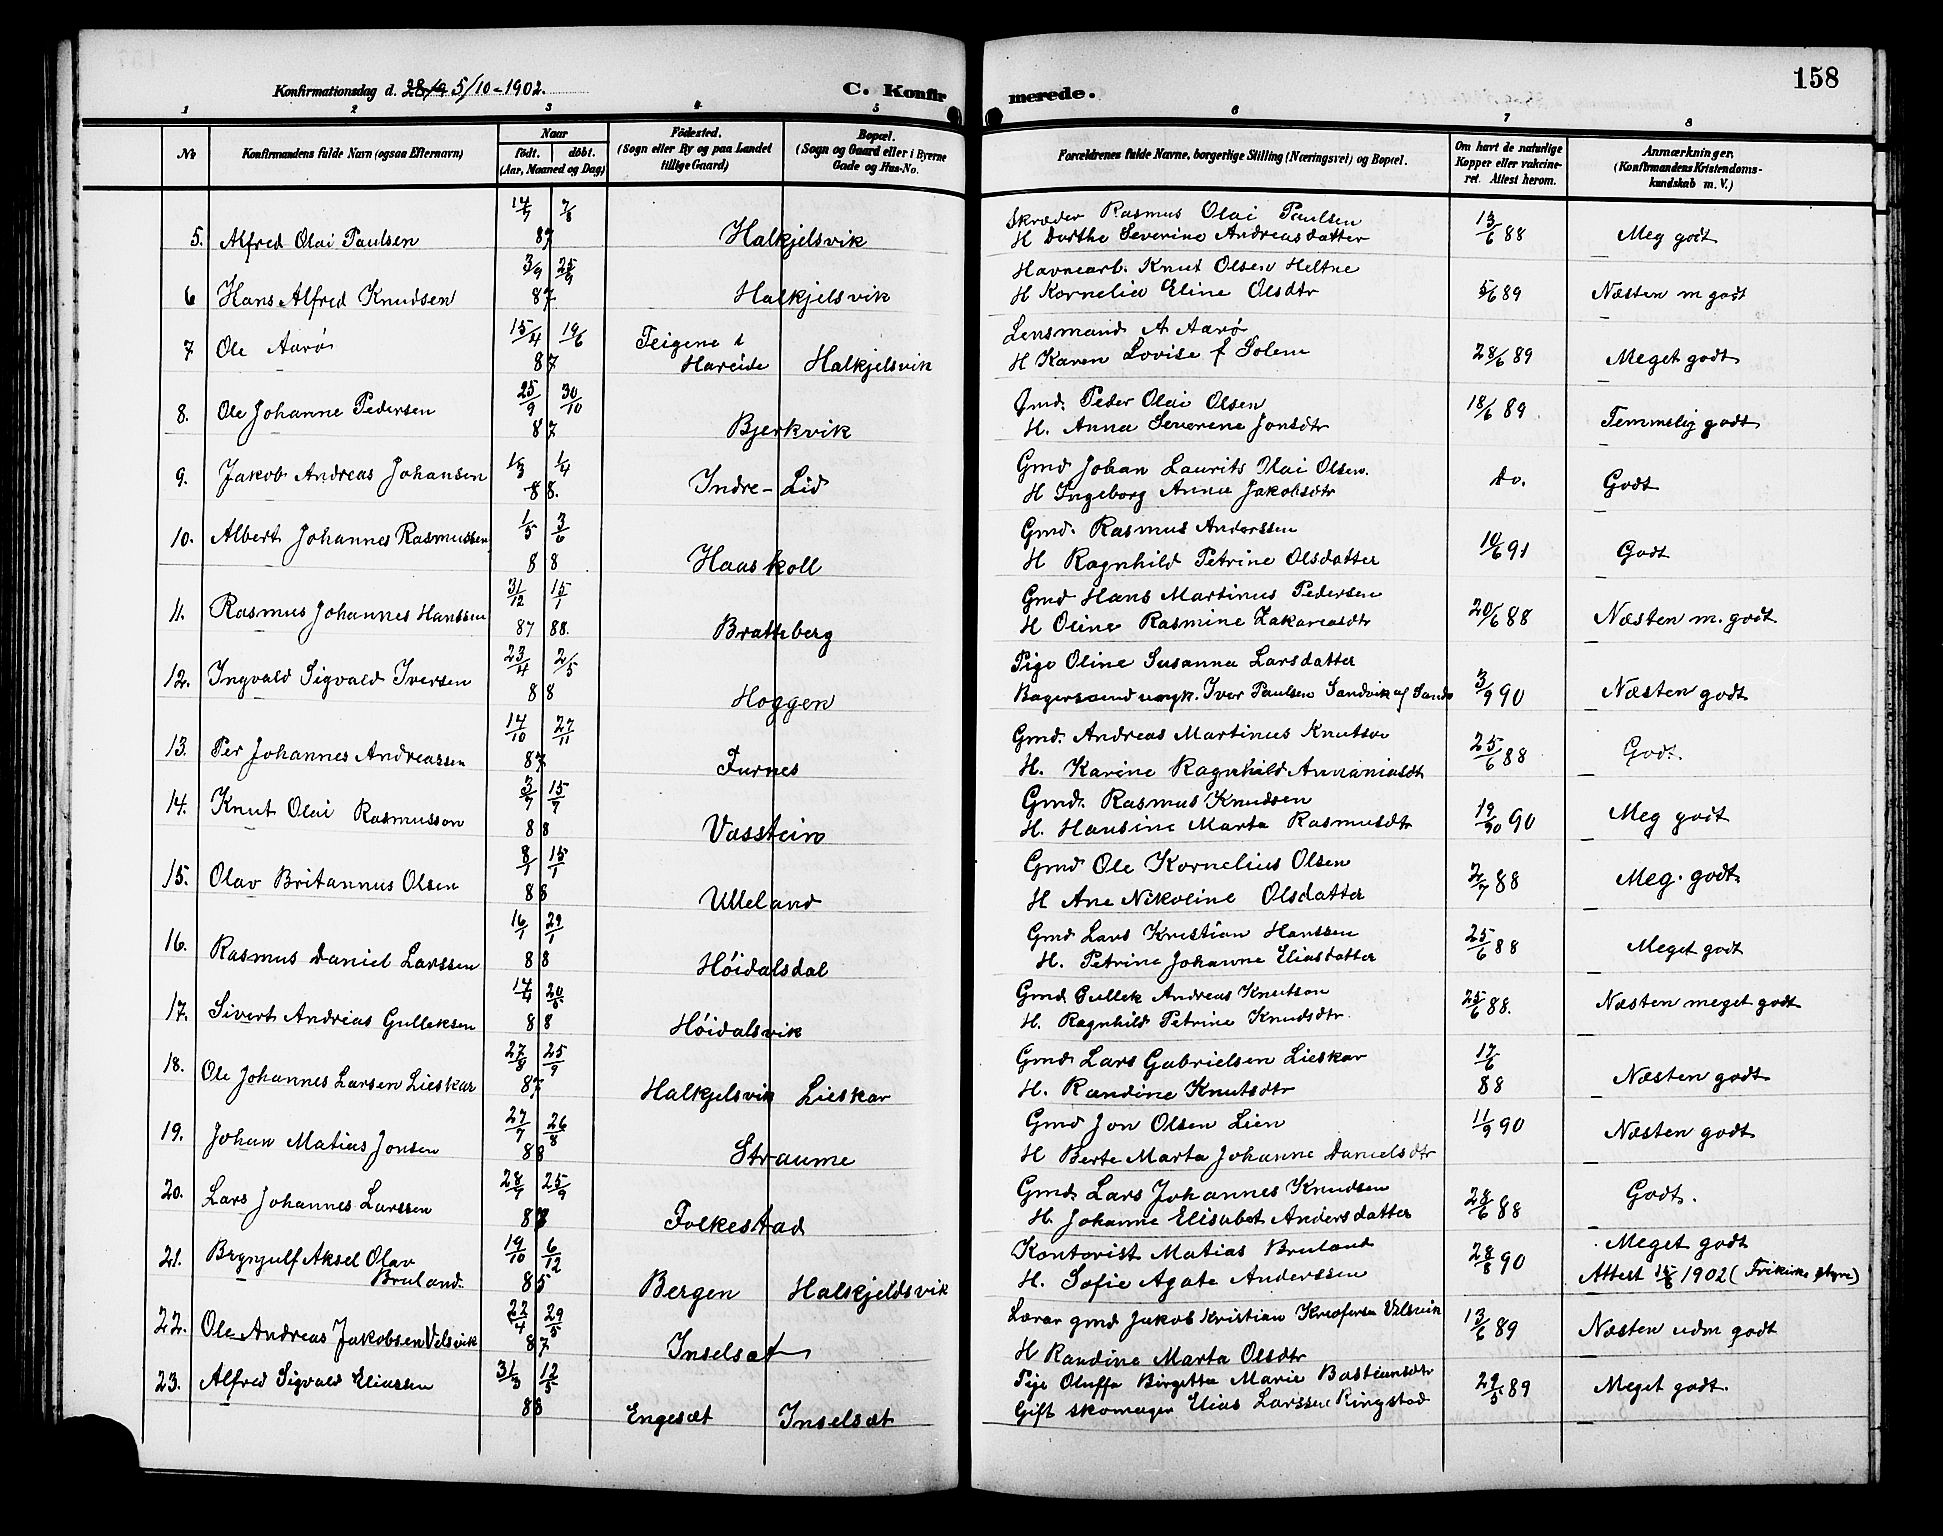 158
Konfirmationsdag d. 28/9 5/10-1902.
C. Konfirmerede.
1 2 3 4 5 6 7 8
№
Konfirmandens fulde Navn (ogsaa Efternavn)
Naar
födt. döbt.
(Aar, Maaned og Dag)
Födested.
(Sogn eller By og paa Landet
tillige Gaard)
Bopæl.
(Sogn og Gaard eller i Byerne
Gade og Hus-No.
Forældrenes fulde Navne, borgerlige Stilling (Næringsvei) og Bopæl.
Om havt de naturlige
Kopper eller vakcine-
ret. Attest herom.
Anmærkninger.
(Konfirmandens Kristendoms-
kundskab m. V.)
5. Alfred Olai Paulsen 14/7 7/8 87 Halkjelsvik Skræder Rasmus Olai Paulsen 13/6 88 Meg godt
H Dorthe Severine Andreasdatter
6 Hans Alfred Knudsen 3/9 25/9 87. Halkjelsvik Havnearb. Knut Olsen Heltne 5/6 89 Næsten m godt
H Kornelia Eline Olsdtr
7 Ole Aarø 15/4 19/6 87 Teigene i Hareide Halkjelsvik Lensmand A Aarø 28/6 89 Meget godt
H Karen Lovise f Solem
8. Ole Johanne Pedersen 25/9 30/10 87 Bjerkvik Gmd. Peder Olai Olsen 18/6 89. Temmelig godt
H. Anna Severene Jonsdtr
9. Jakob Andreas Johansen 1/3 1/4 88. Indre-Lid Gmd Johan Laurits Olai Olsen. do. Godt
H Ingeborg Anna Jakobsdtr
10. Albert Johannes Rasmussen 1/5 3/6 88 Haaskoll Gmd. Rasmus Anderssen 10/6 91 Godt
H Ragnhild Petrine Olsdatter
11. Rasmus Johannes Hanssen 31/12 87 15/1 88. Bratteberg Gmd Hans Martinus Pedersen 20/6 88 Næsten m. godt
H Oline Rasmine Zakariasdtr
12. Ingvald Sigvald Iversen 23/4 2/5 88 Hoggen Pige Oline Susanna Larsdatter 3/9 90 Næsten godt
Bagersvend ungk. Iver Paulsen Sandvik af Sande
13. Per Johannes Andreassen 14/10 27/11 87 Furnes Gmd. Andreas Martinus Knutson 25/6 88 Godt.
H. Karine Ragnhild Annaniasdt
14. Knut Olai Rasmusson 3/7 15/7 88 Vasstein Gmd. Rasmus Knudsen 19/90 90 Meg godt
H. Hansine Marta Rasmusdtr
15. Olav Britannus Olsen 8/1 15/1 88 Ulleland Gmd Ole Kornelius Olsen 2/7 88 Meg. godt.
H Ane Nikoline Olsdatter
16. Rasmus Daniel Larssen 16/1 29/1 88 Høidalsdal Gmd Lars Kristian Hanssen 25/6 88 Meget godt
H. Petrine Johanne Eliasdatter
17. Sivert Andreas Gulleksen 17/4 20/5 88 Høidalsvik Gmd Gullek Andreas Knutson 25/6 88. Næsten meget godt
H. Ragnhild Petrine Knudsdtr.
18. Ole Johannes Larsen Lieskar 27/8 25/9 87 Halkjelsvik Lieskar Gmd Lars Gabrielsen Lieskar 17/6 88 Næsten godt
H. Randine Knutsdtr
19. Johan Matias Jonsen 27/7 26/8 88 Straume Gmd Jon Olsen Lien 11/9 90 Næsten godt
H Berte Marta Johanne Danielsdtr
20. Lars Johannes Larssen 28/7 25/9 87 Folkestad Gmd Lars Johannes Knudsen 28/6 88 Godt.
H. Johanne Elisabet Andersdatter
21. Brynjulf Aksel Olav Bruland. 19/10 6/12 85 Bergen Halskjeldsvik Kontorist Matias Bruland 28/8 90 Meget godt
H. Sofie Agate Anderssen Attest 15/6 1902 (Frikirke styre)
22. Ole Andreas Jakobsen Velsvik 22/4 29/5 87 Inselsæt Lærar gmd Jakob Kristian Kristofersen Velsvik 13/6 89 Næsten udm godt
H Randine Marta Olsdtr
23. Alfred Sigvald Eliassen 31/3 12/5 88 Engesæt Inselsæt Pige Oluffa Birgitta Marie Bastiansdtr 29/5 89 Meget godt.
Gift skomager Elias Larssen Ringstad